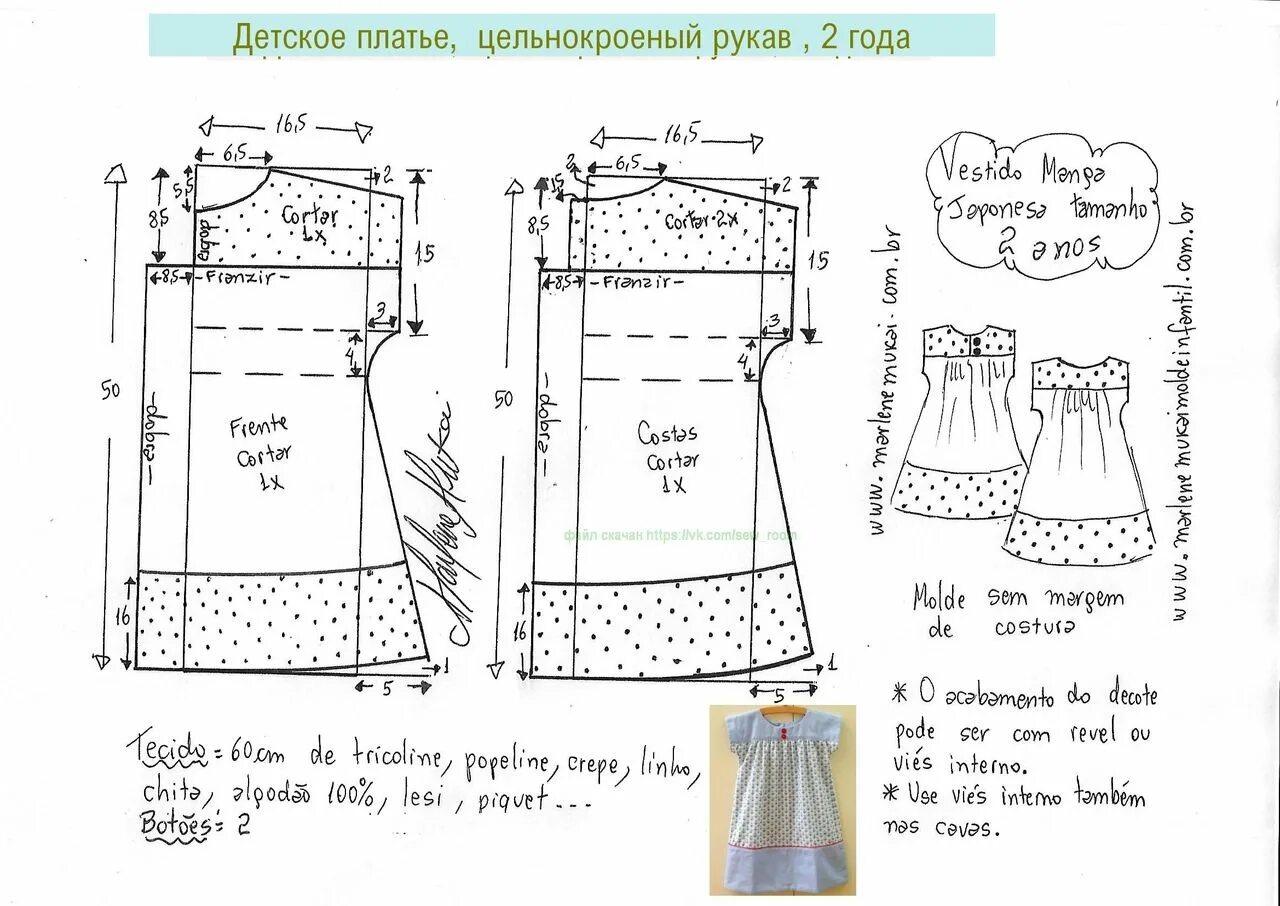 Детское платье, цельнокроеный рукав , 2 года
16,5
6,5
2
5,5
8,5
Cortar
1x
dobra
15
8,5
- Franzir -
3
4
50
- dobra -
Frente
Cortar
1x
Marlene Mukai
16
1
5
16,5
6,5
2
2
1,5
8,5
Cortar 2x
15
8,5
- Franzir -
3
4
50
- dobra -
Costas
Cortar
1x
файл скачан https://vk.com/sew_room
16
1
5
Vestido Manga
Japonesa tamanho
2 anos
www.marlenemukai.com.br
www.marlenemukaimoldeinfantil.com.br
Molde sem margem
de costura
* O acabamento do decote
pode ser com revel ou
viés interno.
* Use viés interno também
nas cavas.
Tecido = 60cm de tricoline, popeline, crepe, linho,
chita, algodão 100%, lesi, piquet ...
Botões = 2